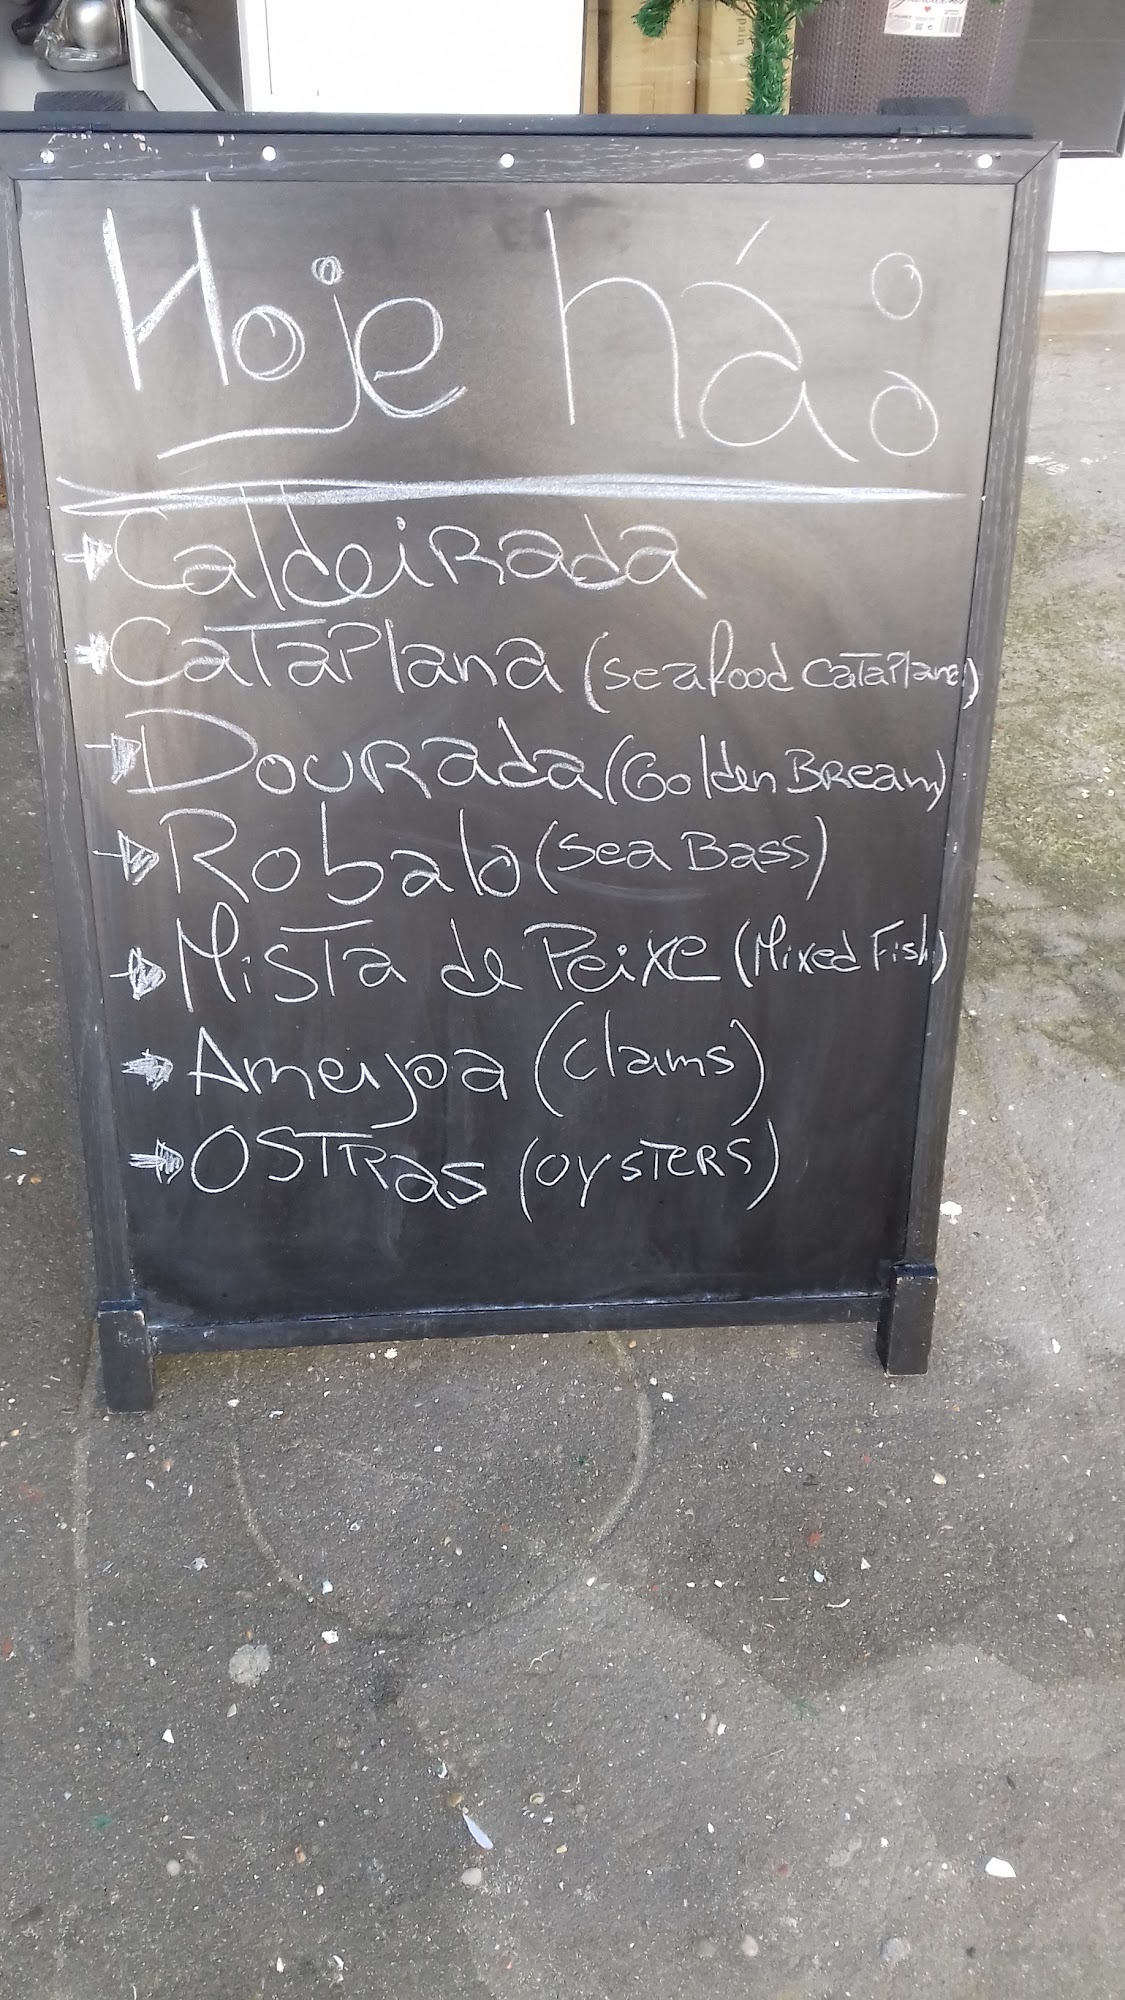 Hoje há:
Caldeirada
Cataplana (seafood cataplana)
Dourada (Golden Bream)
Robalo (Sea Bass)
Mista de Peixe (Mixed Fish)
Ameijoa (clams)
Ostras (oysters)